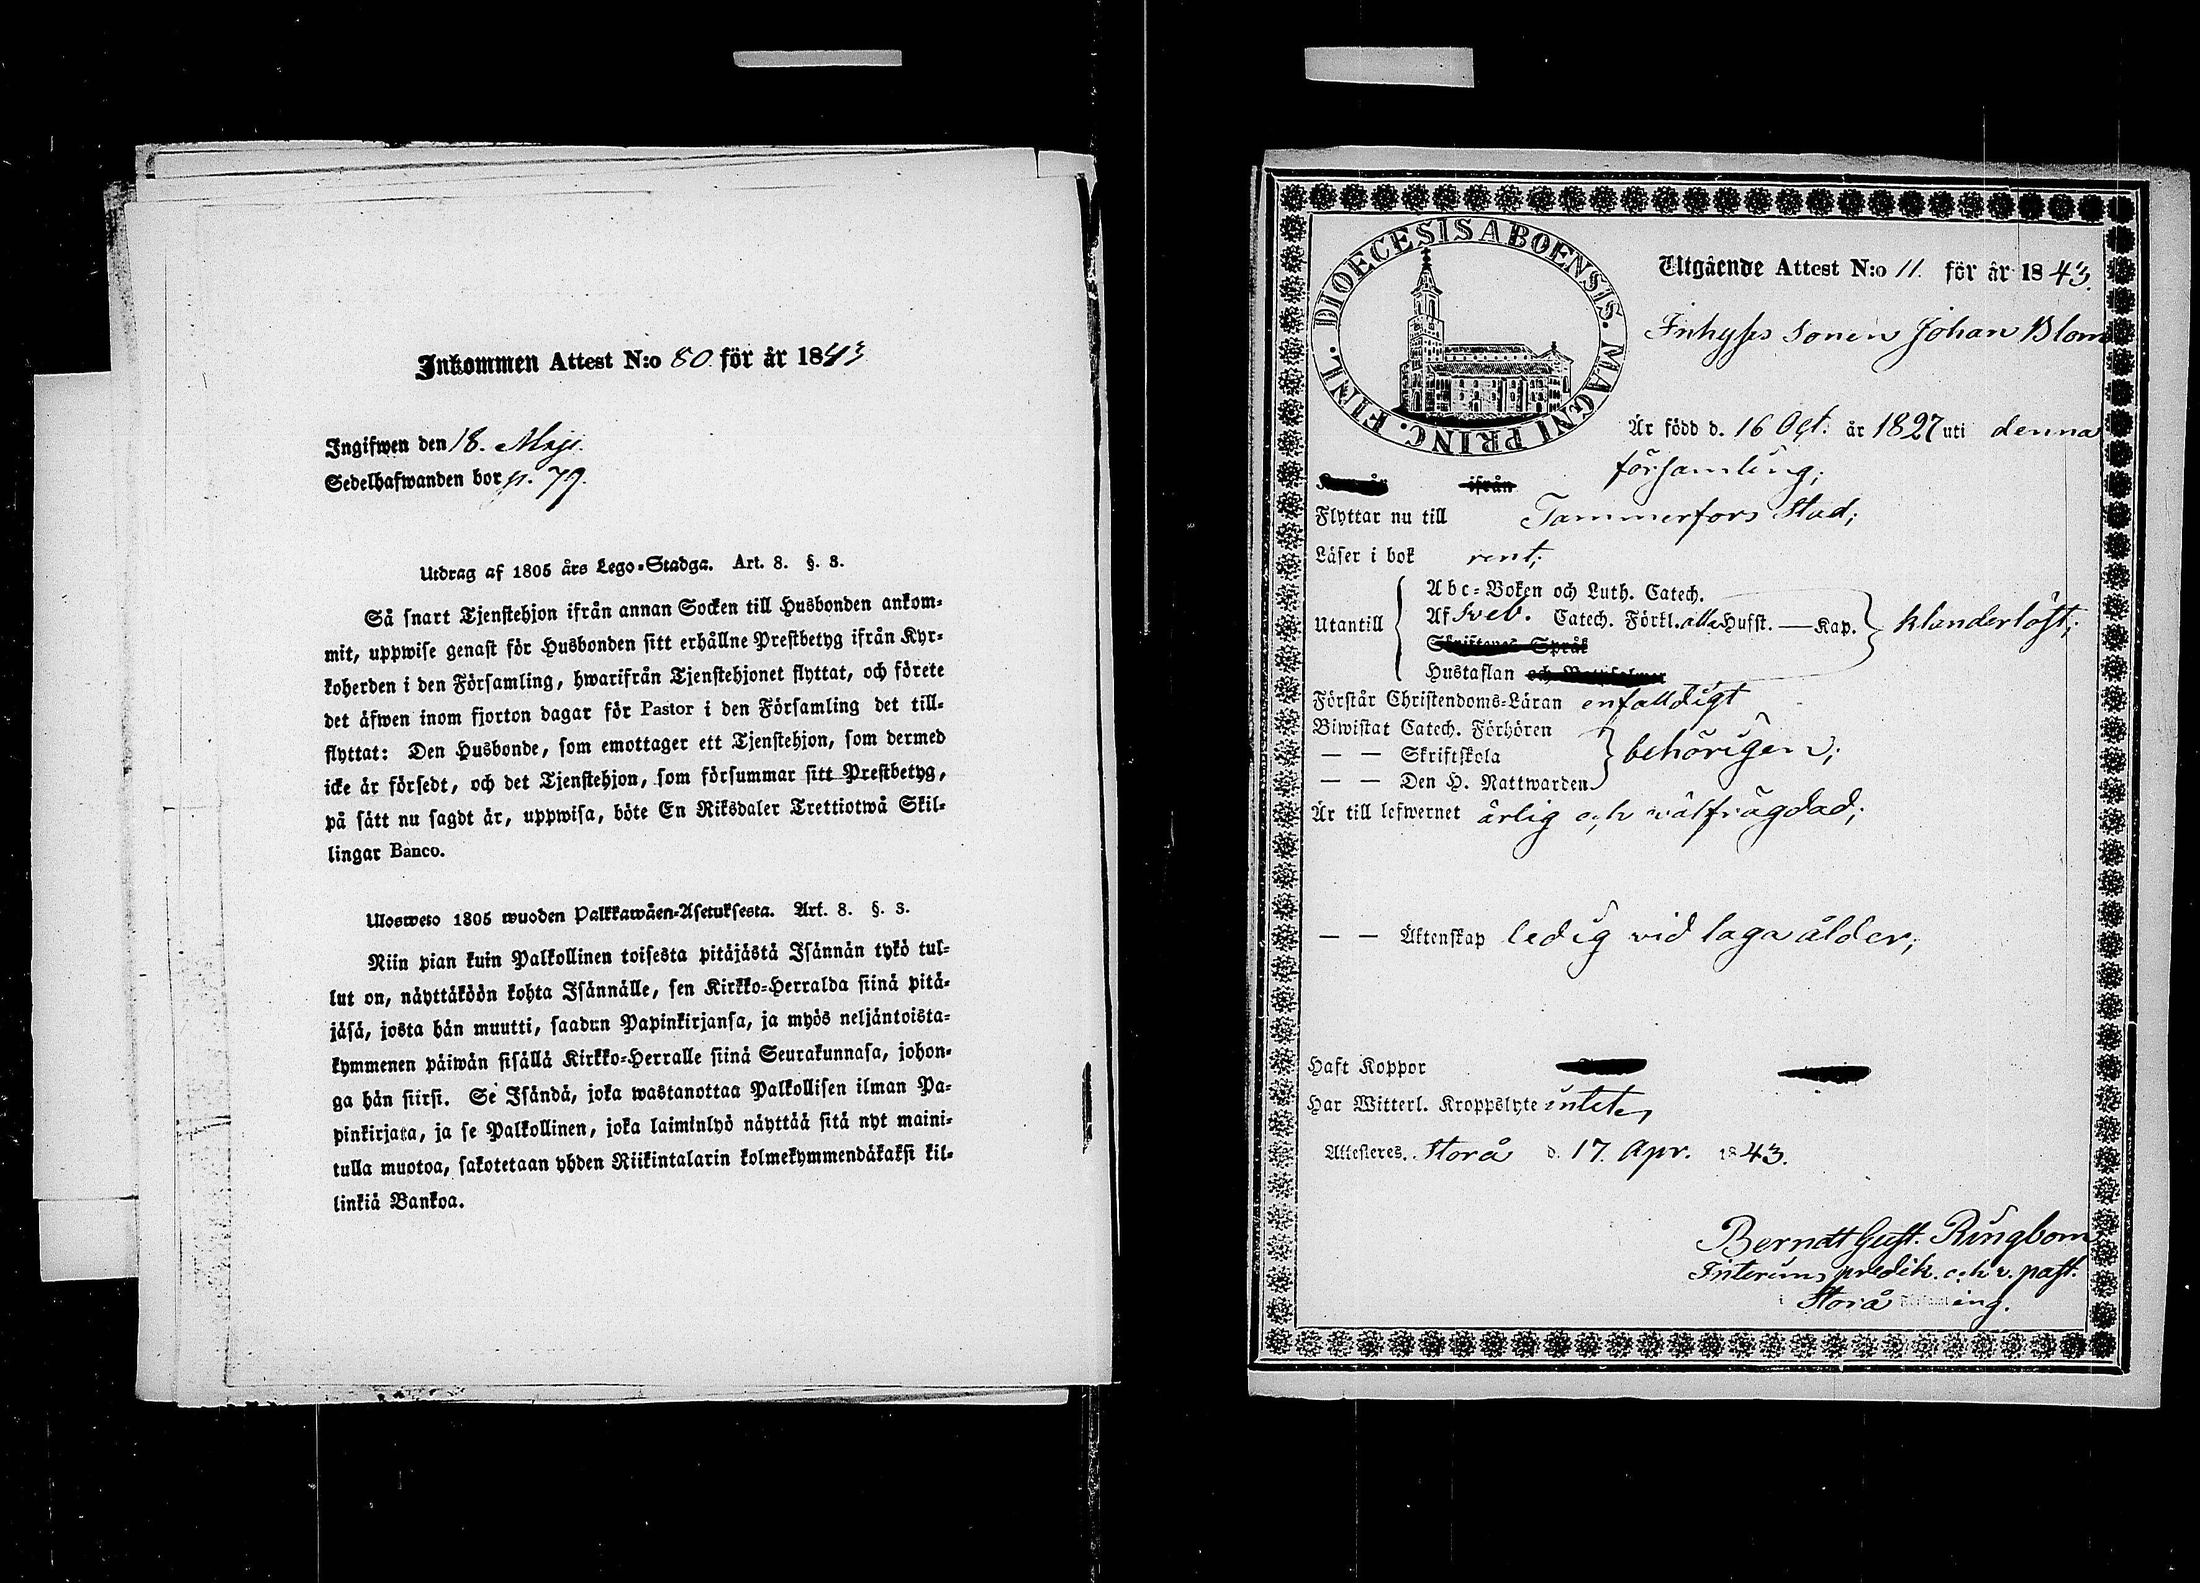 Inkommen Attest N:o 80 för år 1843
Ingifwen den 18. Maji.
Sedelhafwanden bor p. 79.
Utdrag af 1805 års Lego-Stadga. Art. 8. §. 3.
Så snart Tjenstehjon ifrån annan Socken till Husbonden ankom-
mit, uppwise genast för Husbonden sitt erhållne Prestbetyg ifrån Kyr-
koherden i den Församling, hwarifrån Tjenstehjonet flyttat, och förete
det äfwen inom fjorton dagar för Pastor i den Församling det till-
flyttat: Den Husbonde, som emottager ett Tjenstehjon, som dermed
icke är försedt, och det Tjenstehjon, som försummar sitt Prestbetyg,
på sätt nu sagdt är, uppwisa, böte En Riksdaler Trettiotwå Skil-
lingar Banco.
Ulosweto 1805 wuoden Palkkawäen-Asetuksesta. Art. 8. §. 3.
Niin pian kuin Palkollinen toisesta pitäjästä Isännän tykö tul-
lut on, näyttäköön kohta Isännälle, sen Kirkko-Herralda siinä pitä-
jäsä, josta hän muutti, saadun Papinkirjansa, ja myös neljäntoista-
kymmenen päiwän sisällä Kirkko-Herralle siinä Seurakunnasa, johon-
ga hän siirsi. Se Isändä, joka wastanottaa Palkollisen ilman Pa-
pinkirjata, ja se Palkollinen, joka laiminlyö näyttää sitä nyt maini-
tulla muotoa, sakotetaan yhden Riikintalarin kolmekymmendäkaksi kil-
linkiä Bankoa.
DIOECESIS ABOENSIS. MAGNI PRINC. FINL.
Utgående Attest N:o 11. för år 1843.
Inhyses sonen Johan Blom
Är född d. 16 Oct. år 1827 uti denna
församling;
ifrån
Flyttar nu till Tammerfors Stad;
Läser i bok rent;
Utantill
Abc-Boken och Luth. Catech.
Af Sveb. Catech. Förkl. alla Husst. — Kap. klanderlöst;
Skriftenes Språk
Hustaflan och
Förstår Christendoms-Läran enfalldigt
Biwistat Catech. Förhören
— — Skriftskola behörigen;
— — Den H. Nattwarden
Är till lefwernet ärlig och välfrägdad;
— — Äktenskap ledig vid laga ålder;
Haft Koppor
Har Witterl. Kroppslyte intet,
Attesteres. Storå d. 17. Apr. 1843.
Berndt Gust. Ringbom
Interims predik. och v. past.
i Storå ing.